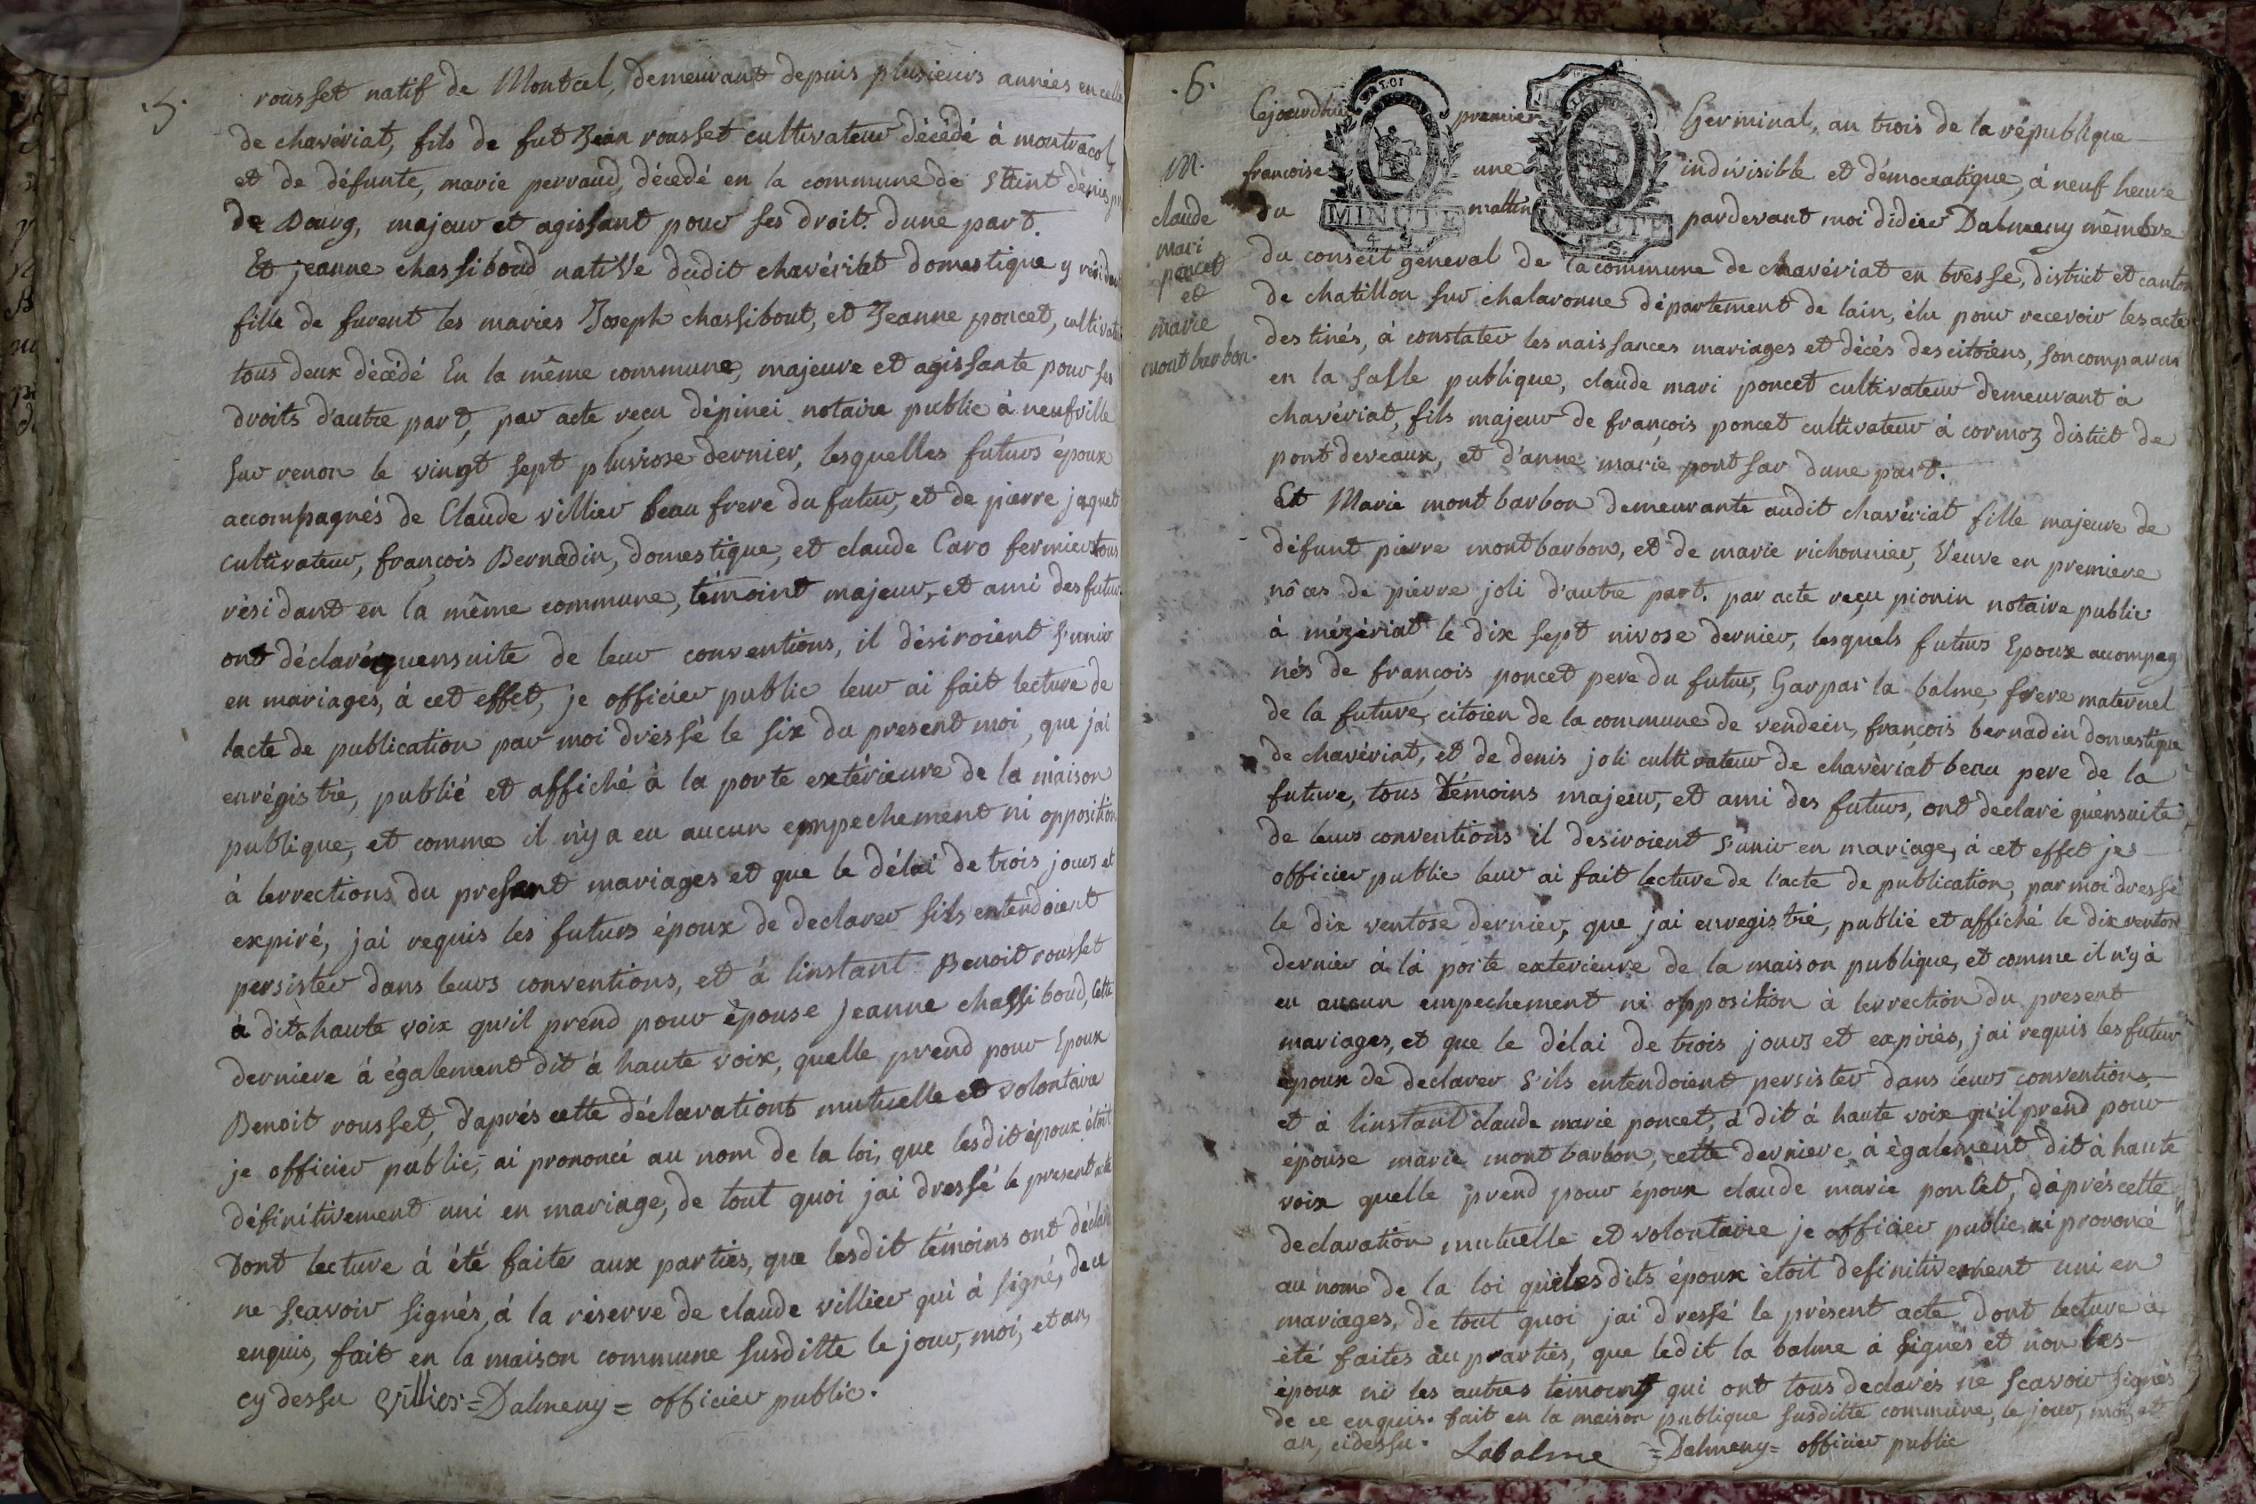 .5.
rousset natif de Montcel, demeurant depuis plusieurs années en celle
de chavériat, fils de fut Jean rousset cultivateur décédé à montracol,
et de défunte, marie perraud, décedé en la commune de Saint dénis,
de Bourg, majeur et agissant pour ses droit. dune part.
Et jeanne chassiboud native dudit chavériat domestique y résidant
fille de furent les maries Joseph chassibout, et Jeanne poncet, cultivateur
tous deux décédé En la même commune, majeure et agissante pour ses
droits d'autre part, par acte reçu dépinei notaire public à neufville
sur renon le vingt sept pluviose dernier, lesquelles futurs époux
accompagnés de Claude villier beau frere du futur, et de pierre jaquet
cultivateur, françois Bernadin, domestique, et claude Caro fermier tous
résidant en la même commune, témoint majeur, et ami des futur.
ont déclaré quensuite de leur conventions, il désiroient s'unir
en mariages, à cet effet, je officier public leur ai fait lecture de
lacte de publication par moi dressé le six du present moi, que jai
enrégistré, publié et affiché à la porte extérieure de la maison
publique, et comme il n'y a eu aucun empechement ni opposition
à lerrections du present mariages et que le délai de trois jours et
expiré, jai requis les futurs époux de declarer sils entendoient
persister dans leurs conventions, et à linstant Benoit rousset
à dit à haute voix qu'il prend pour épouse Jeanne chassiboud, cette
derniere à également dit à haute voix, quelle prend pour Epoux
Benoit rousset, d'aprés cette déclarations mutuelle et volontaire
je officier public, ai prononcé au nom de la loi, que lesdit époux étoit
définitivement uni en mariage, de tout quoi jai dressé le present acte
Dont lecture à été faite aux parties, que lesdit témoins ont déclaré
ne sçavoir signés, à la réserve de claude villier qui à signé, de ce
enquis, fait en la maison commune susditte le jour, moi, et an,
cy dessu Villier = Dalmeny = officier public.
.6.
M.
claude
mari
poncet
et
marie
montbarbon.
Cejourdhui premier Germinal, an trois de la république
francoise une indivisible et démocratique, à neuf heure
du mattin pardevant moi didier Dalmeny mêmbre
MINUTE
MINUTE
du conseil general de la commune de chavériat en bresse, district et canton
de chatillon sur chalaronne département de lain, élu pour recevoir les acte
destinés, à constater les naissances mariages et décés des citoiens, son comparu
en la salle publique, claude mari poncet cultivateur demeurant à
chavériat, fils majeur de françois poncet cultivateur à cormoz distict de
pont deveaux, et d'anne marie pont sar dune part.
Et Marie mont barbon demeurante audit chavériat fille majeure de
défunt pierre montbarbon, et de marie richonnier, Veuve en premiere
nôces de pierre joli d'autre part. par acte reçu pionin notaire public
à mézériat le dix sept nivose dernier, lesquels futurs Epoux accompag
nés de françois poncet pere du futur, Garpar la balme, frere maternel
de la future, citoien de la commune de vendein, françois bernadin domestique
de chavériat, et de denis joli cultivateur de chavèriat beau pere de la
future, tous témoins majeur, et ami des futurs, ont declaré quènsuite
de leurs conventions il desiroient s'unir en mariage, à cet effet je
officier public leur ai fait lecture de l'acte de publication, par moi dressé
le dix ventose dernier, que jai enregistré, publié et affiché le dix ventose
dernier à la porte exterieure de la maison publique, et comme il n'y à
eu aucun empechement ni opposition à lerrection du present
mariages, et que le délai de trois jours et expirés, jai requis les futur
époux de declarer s'ils entendoient persister dans leurs conventions,
et à linstant claude marie poncet, à dit à haute voix qu'il prend pour
épouse marie mont barbon, cette derniere à ègalement dit à haute
voix quelle prend pour époux claude marie poncet, d'àprés cette
declaration mutuelle et volontaire je officier public ai prononcé
au nom de la loi què lesdits époux ètoit definitivement uni en
mariages, de tout quoi jai dressé le prèsent acte dont lecture à
èté faites au parties, que ledit la balme à signés et non les
époux ni les autres témoins qui ont tous declarés ne scavoir signés
de ce enquis. fait en la maison publique susditte commune, le jour, moi, et
an, cidessu. Labalme = Dalmeny = officier public